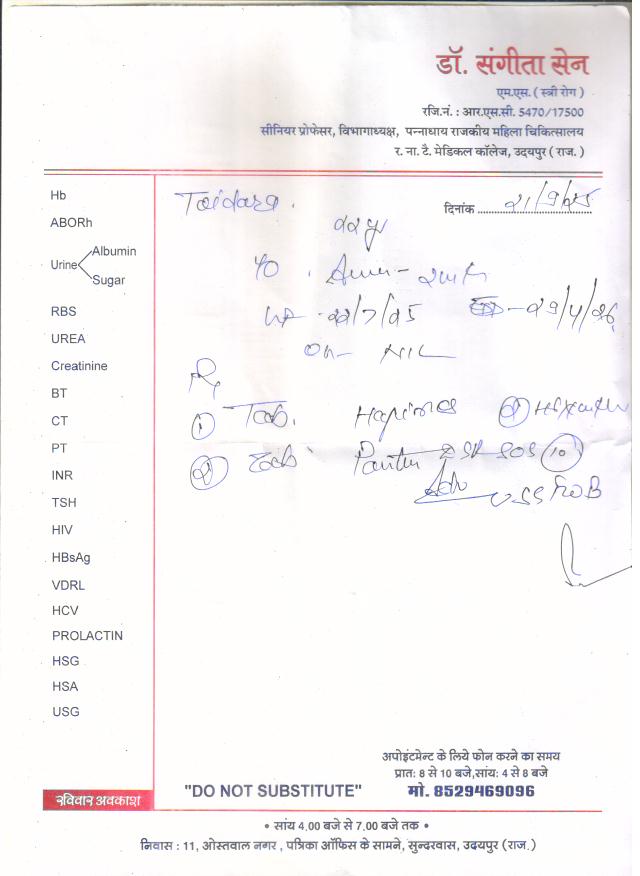 डॉ. संगीता सेन
एम.एस. ( स्त्री रोग )
रजि.नं. : आर.एस.सी. 5470/17500
सीनियर प्रोफेसर, विभागाध्यक्ष, पन्नाधाय राजकीय महिला चिकित्सालय
र. ना. टै. मेडिकल कॉलेज, उदयपुर ( राज. )
दिनांक 21/9/25
Hb
ABORh
Urine Albumin
Sugar
RBS
UREA
Creatinine
BT
CT
PT
INR
TSH
HIV
HBsAg
VDRL
HCV
PROLACTIN
HSG
HSA
USG
22y
LMP - 22/7/25 - 29/4/26
O/h - NIL
Rx
① Tab.
② Tab. SOS 10
Adv USS FWB
रविवार अवकाश
अपोइंटमेन्ट के लिये फोन करने का समय
प्रात: 8 से 10 बजे,सांय: 4 से 8 बजे
"DO NOT SUBSTITUTE" मो. 8529469096
• सांय 4.00 बजे से 7.00 बजे तक •
निवास : 11, ओस्तवाल नगर , पत्रिका ऑफिस के सामने, सुन्दरवास, उदयपुर (राज.)